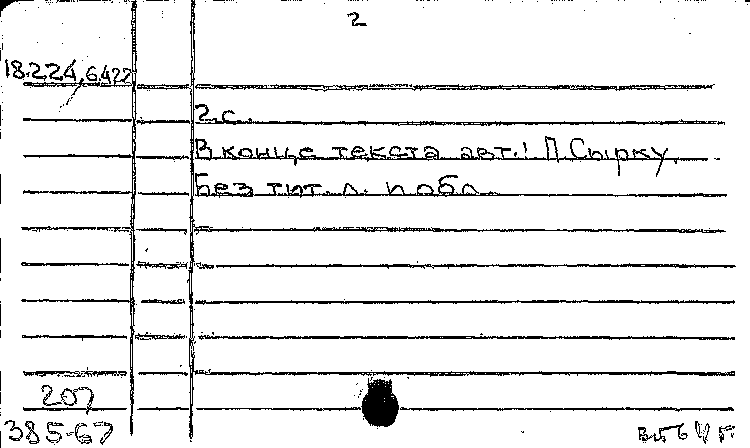 2
18.224.6.422
2 с.
В конце текста авт.: П. Сырку.
Без тит. л. и обл.
207
385-67